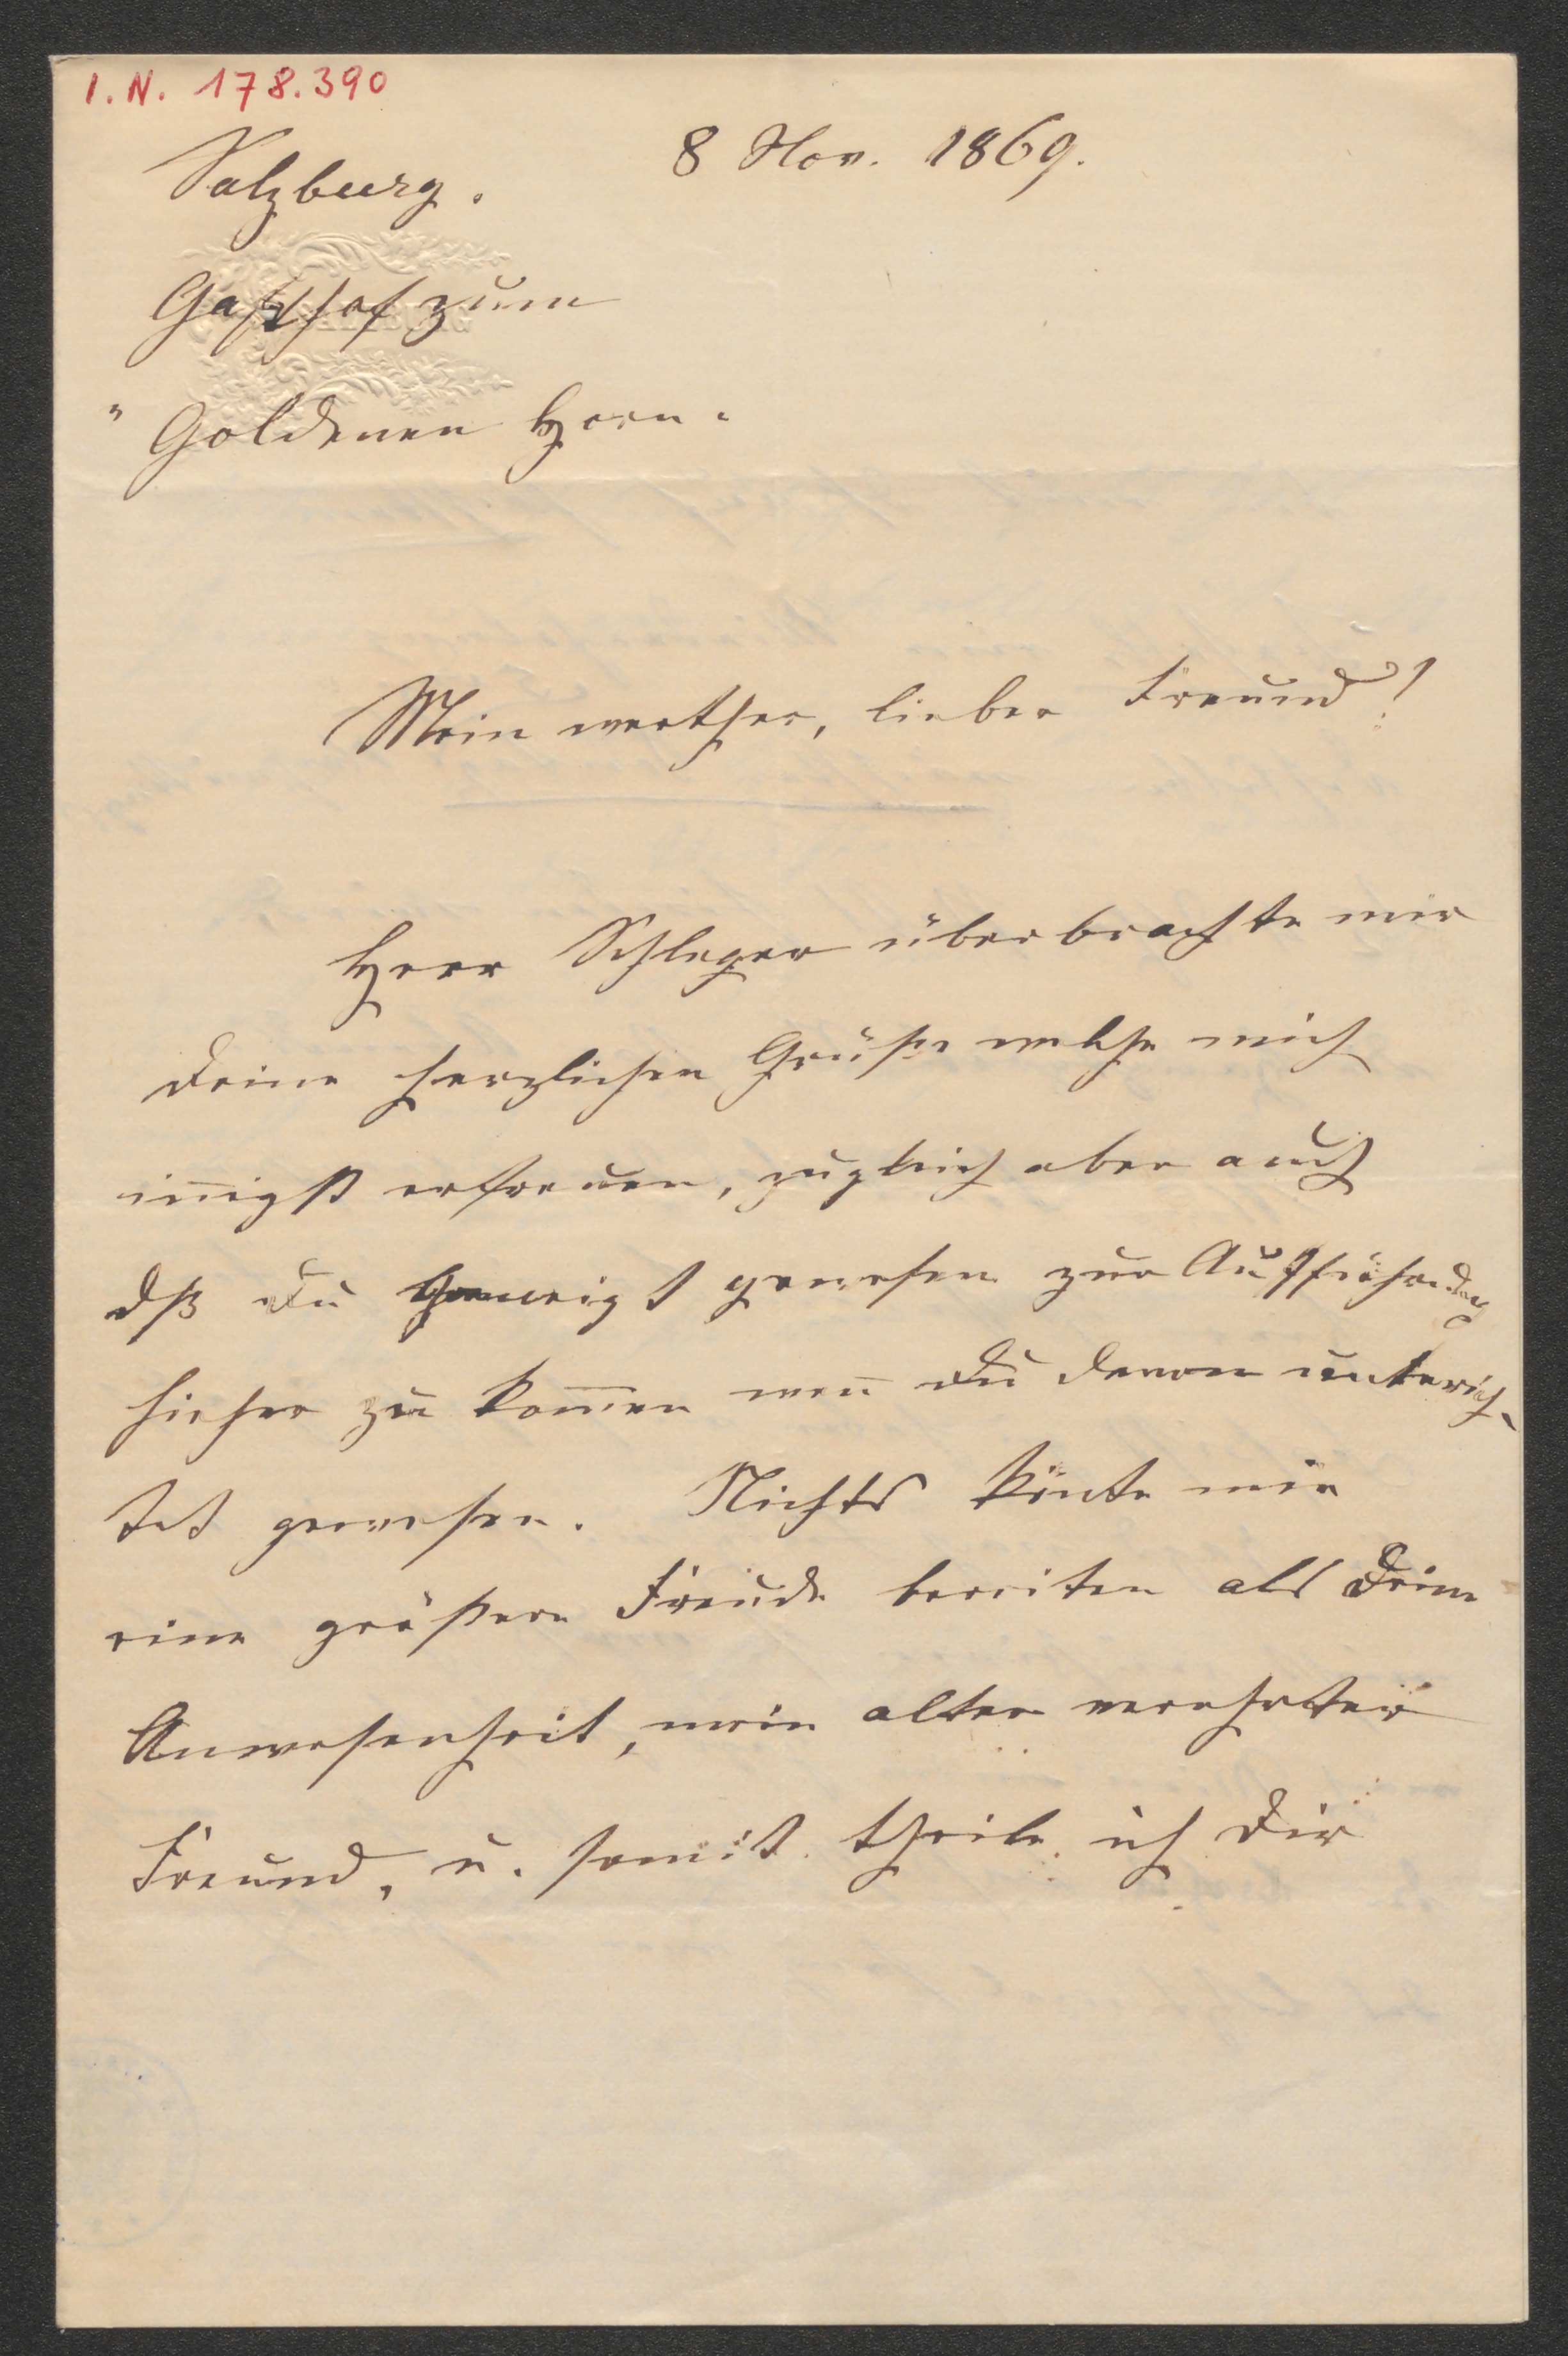 I.N. 178.390
Salzburg. 8 Nov. 1869.
Gasthof zum
"Goldenen Horn.
Mein werther, lieber Freund!
Herr Schleger überbrachte mir
Deine herzlichen Grüße welche mich
iñigst erfreuen, zugleich aber auch
dß Du geneigt gewesen zur Aufführung
hieher zu kom̄en wen̄ Du davon unterich-
tet gewesen. Nichts kön̄te mir
eine größere Freude bereiten als Deine
Anwesenheit, mein alter verehrter
Freund, u. somit theile ich Dir